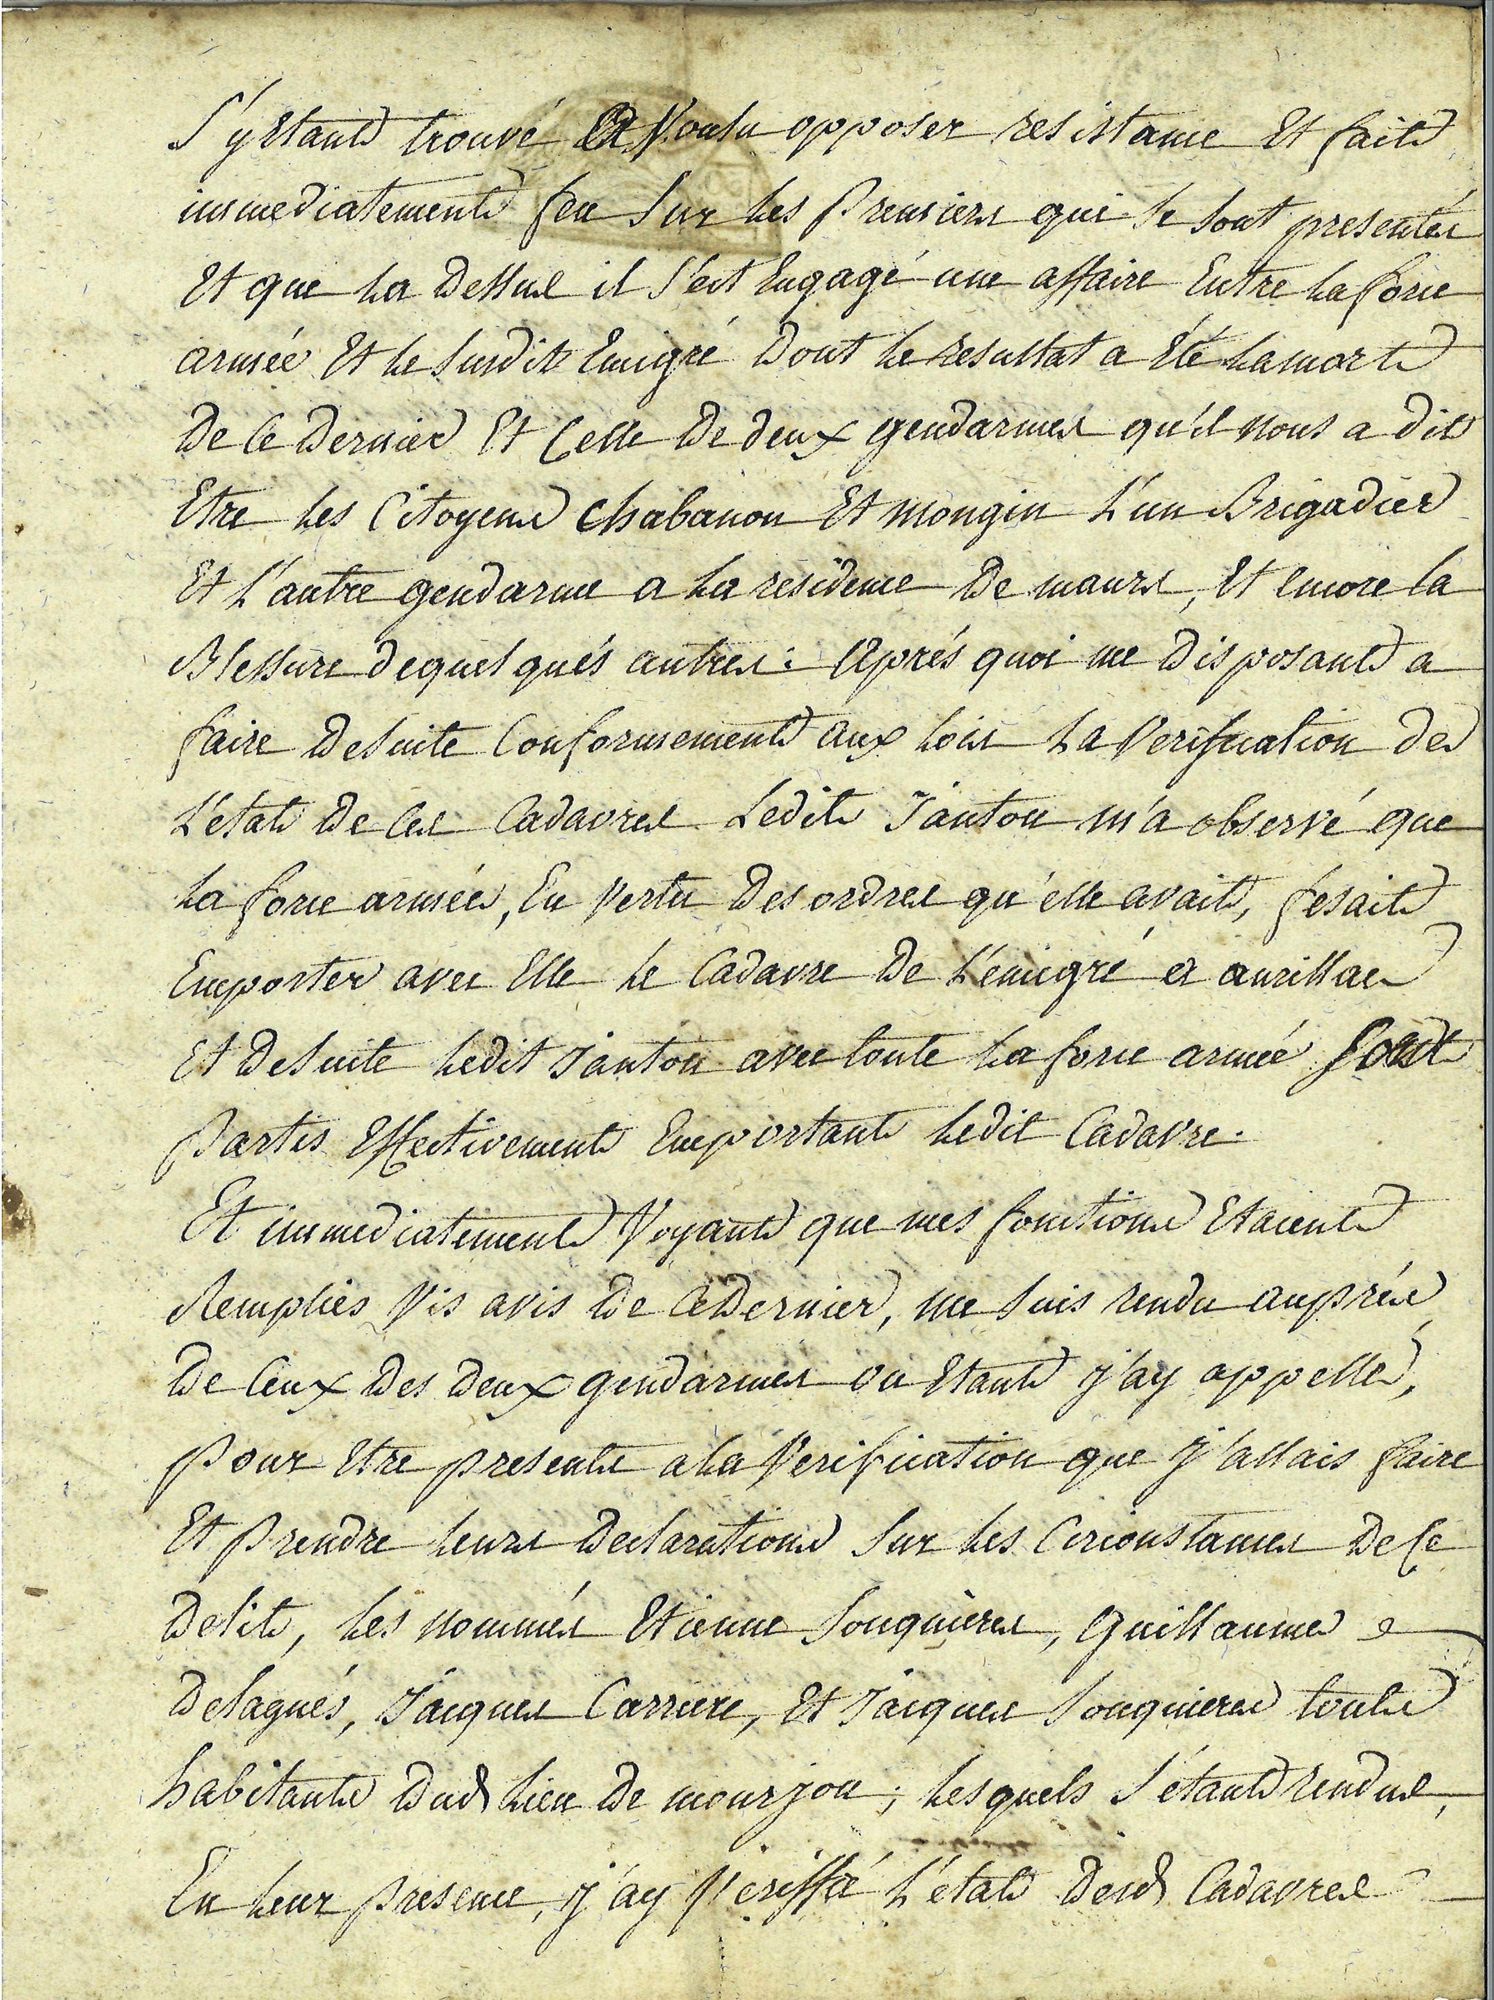 S'y etant trouvé a voulu opposer resistance et fait
immediatement feu sur les premiers qui se sont presentés
et que la dessus il s'est engagé une affaire entre la force
armée et le susdit emigré dont le resultat a été la mort
de ce dernier et celle de deux gendarmes qu'il nous a dit
etre les citoyens chabanon et mongin l'un Brigadier
et l'autre gendarme a la residence de maurs, et encore la
Blessure de quelqués autres: Aprés quoi me disposant a
faire de suite conformement aux lois la verification de
l'état de ces cadavres ledit Janton m'a observé que
la force armée, en vertu des ordres qu'elle avait, fesait
emporter avec elle le cadavre de l'emigré a aurillac
et de suite ledit Janton avec toute la force armée sont
partis effectivement emportant ledit cadavre.
Et immediatement voyant que mes fonctions etaient
remplies vis avis de ce dernier, me suis rendu auprés
de ceux des deux gendarmes ou etant j'ay appellé,
pour etre present a la verification que j'allais faire
et prendre leurs declarations sur les circonstances de ce
delit, les nommés Etienne Souquieres, Guillaume
delagnés, Jacques Carriere, et Jacques Souquieres touts
habitants dud lieu de mourjou; lesquels s'étant rendus,
En leur presence, j'ay veriffié l'état desd cadavres